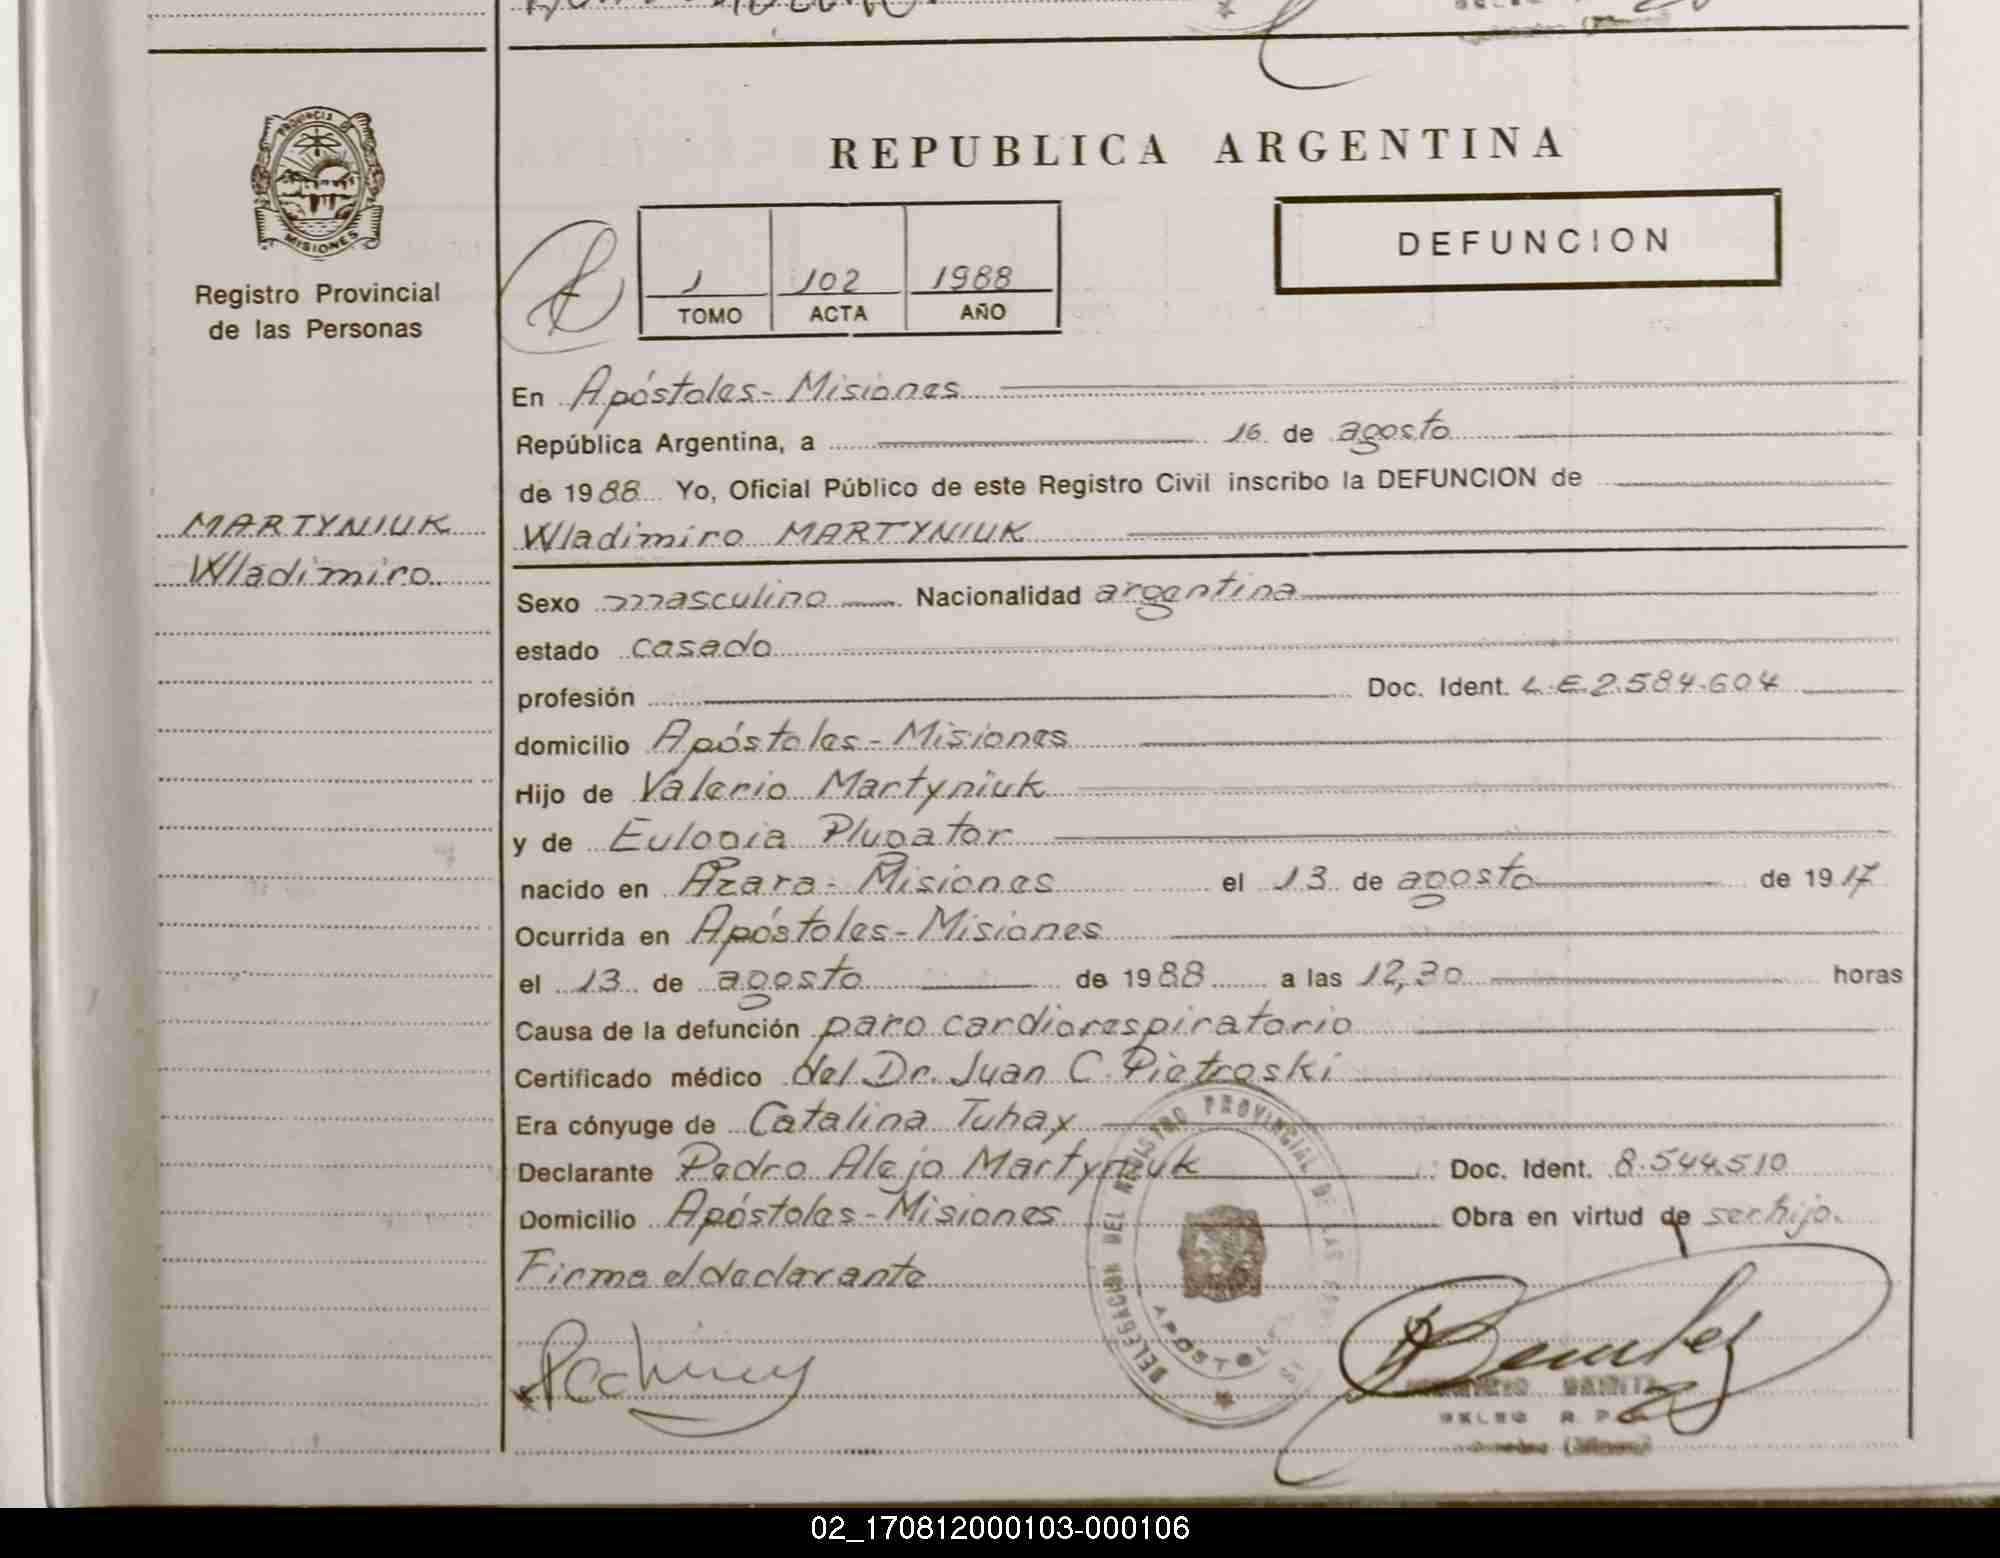 PROVINCIA DE
MISIONES
Registro Provincial
de las Personas
MARTYNIUK
Wladimiro
REPUBLICA ARGENTINA
1 102 1988
TOMO ACTA AÑO
DEFUNCION
En Apóstoles - Misiones
República Argentina, a 16 de agosto
de 1988 Yo, Oficial Público de este Registro Civil inscribo la DEFUNCION de
Wladimiro MARTYNIUK
Sexo masculino Nacionalidad argentina
estado casado
profesión Doc. Ident. L.E.2.584.604
domicilio Apóstoles - Misiones
Hijo de Valerio Martyniuk
y de Eulogia Plugator
nacido en Azara - Misiones el 13 de agosto de 1917
Ocurrida en Apóstoles - Misiones
el 13 de agosto de 1988 a las 12,30 horas
Causa de la defunción paro cardiorespiratorio
Certificado médico del Dr. Juan C. Pietroski
Era cónyuge de Catalina Tuhay
Declarante Pedro Alejo Martyniuk Doc. Ident. 8.544.510
Domicilio Apóstoles - Misiones Obra en virtud de ser hijo.
Firma el declarante
DELEGACION DEL REGISTRO PROVINCIAL DE LAS
APOSTOLES
DELEG R. P.
02_170812000103-000106